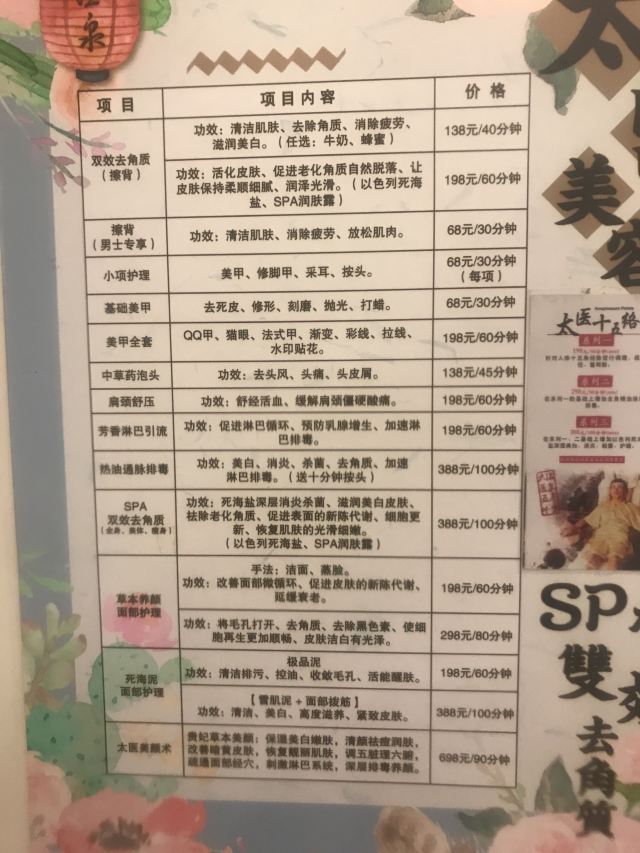 温泉
项目 项目内容 价格
双效去角质
（擦背）
功效：清洁肌肤、去除角质、消除疲劳、
滋润美白。（任选：牛奶、蜂蜜）
138元/40分钟
功效：活化皮肤、促进老化角质自然脱落、让
皮肤保持柔顺细腻、润泽光滑。（以色列死海
盐、SPA润肤露）
198元/60分钟
擦背
（男士专享）
功效：清洁肌肤、消除疲劳、放松肌肉。
68元/30分钟
小项护理
美甲、修脚甲、采耳、按头。
68元/30分钟
（每项）
基础美甲
去死皮、修形、刻磨、抛光、打蜡。
68元/30分钟
美甲全套
QQ甲、猫眼、法式甲、渐变、彩线、拉线、
水印贴花。
198元/60分钟
中草药泡头
功效：去头风、头痛、头皮屑。
138元/45分钟
肩颈舒压
功效：舒经活血、缓解肩颈僵硬酸痛。
198元/60分钟
芳香淋巴引流
功效：促进淋巴循环、预防乳腺增生、加速淋
巴排毒。
198元/60分钟
热油通脉排毒
功效：美白、消炎、杀菌、去角质、加速
淋巴排毒。（送十分钟按头）
388元/100分钟
SPA
双效去角质
（全身、美体、瘦身）
功效：死海盐深层消炎杀菌、滋润美白皮肤、
祛除老化角质、促进表面的新陈代谢、细胞更
新、恢复肌肤的光滑细嫩。
（以色列死海盐、SPA润肤露）
388元/100分钟
草本养颜
面部护理
手法：洁面、蒸脸。
功效：改善面部微循环、促进皮肤的新陈代谢、
延缓衰老。
198元/60分钟
功效：将毛孔打开、去角质、去除黑色素、使细
胞再生更加顺畅、皮肤洁白有光泽。
298元/80分钟
死海泥
面部护理
极品泥
功效：清洁排污、控油、收敛毛孔、活能醒肤。
198元/60分钟
【雪肌泥+面部拨筋】
功效：清洁、美白、高度滋养、紧致皮肤。
388元/100分钟
太医美颜术
贵妃草本美颜；保湿美白嫩肤，清颜祛痘润肤，
改善暗黄皮肤，恢复靓丽肌肤，调五脏理六腑，
疏通面部经穴，刺激淋巴系统，深层排毒养颜。
698元/90分钟
太
美容
太医十五络
系列一
系列二
系列三
SPA
雙效
去角質